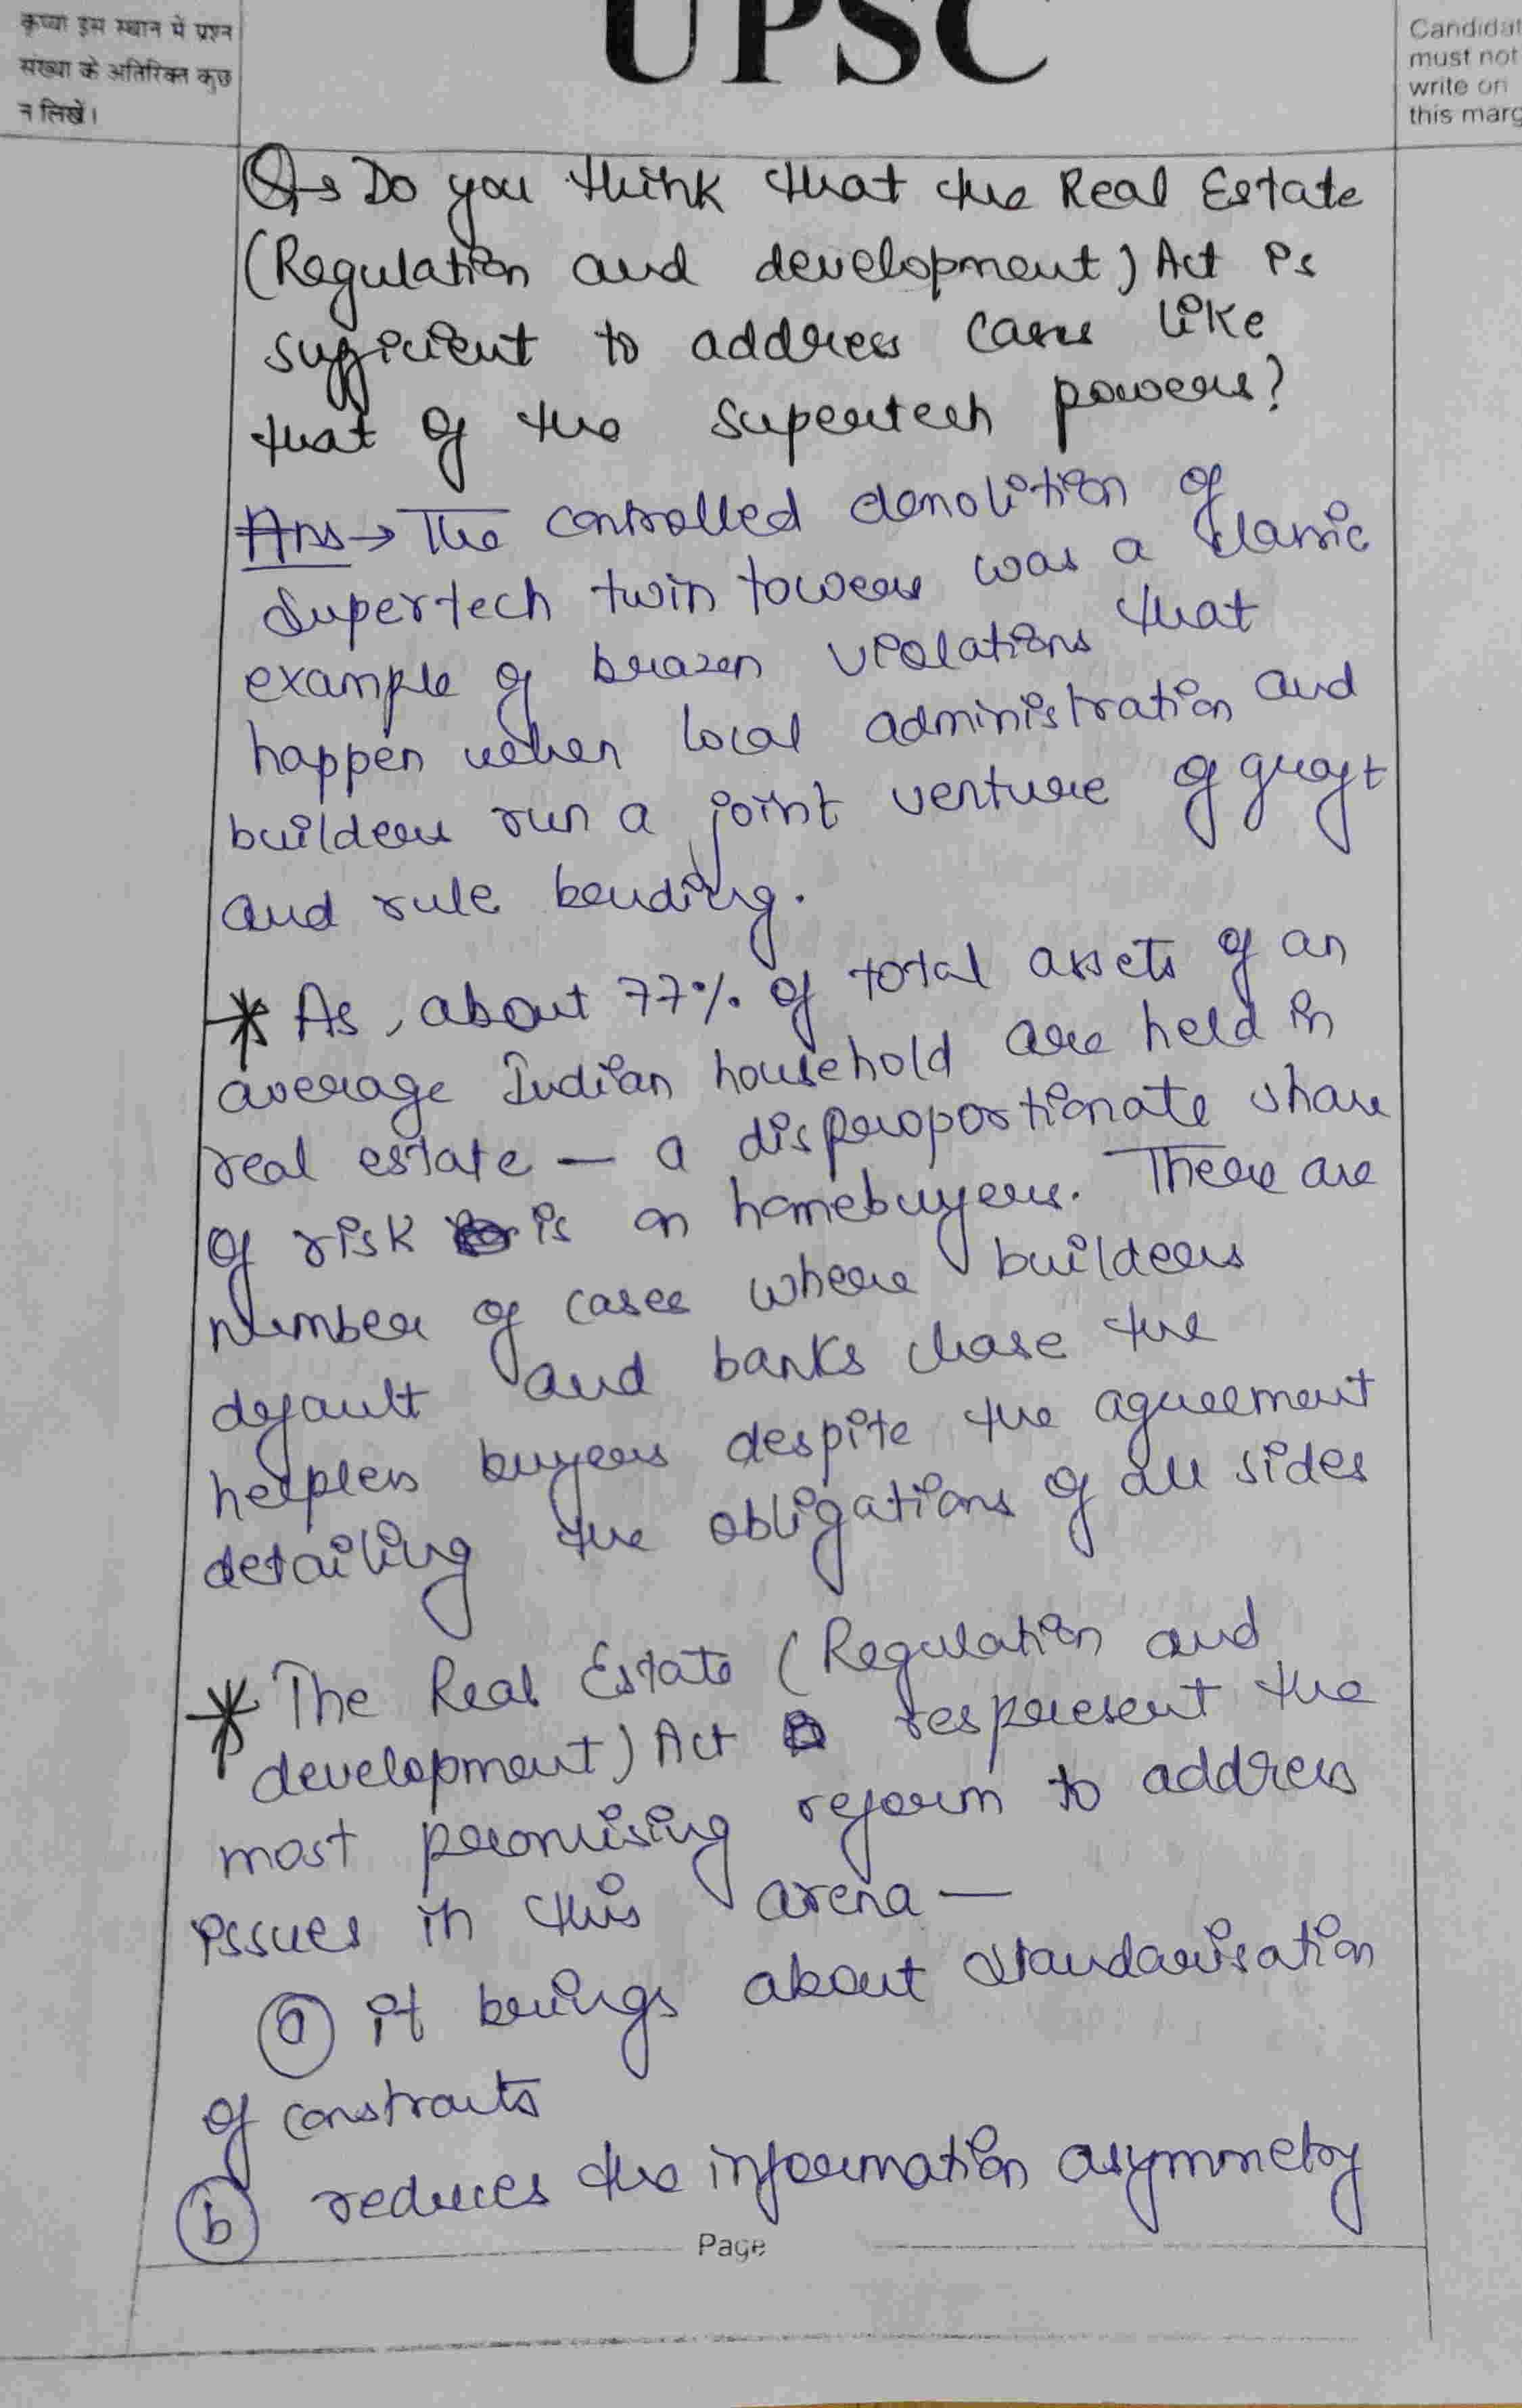 कृप्या इस स्थान में प्रश्न
संख्या के अतिरिक्त कुछ
न लिखें।
UPSC
Candidat
must not
write on
this marg
Q→ Do you think that the Real Estate
(Regulation and development) Act is
sufficient to address cases like
that of the Supertech powers?
Ans → The controlled demolition of
Supertech twin towers was a classic
example of brazen violations that
happen when local administration and
builders run a joint venture of graft
and rule bending.
* As, about 77% of total assets of an
average Indian household are held in
real estate — a disproportionate share
of risk is on homebuyers. There are
number of cases where builders
default and banks chase the
helpless buyers despite the agreement
detailing the obligations of all sides
* The Real Estate (Regulation and
development) Act respresent the
most promising reform to address
issues in this arena —
(a) it brings about standarisation
of constracts
(b) reduces the information asymmetry
Page